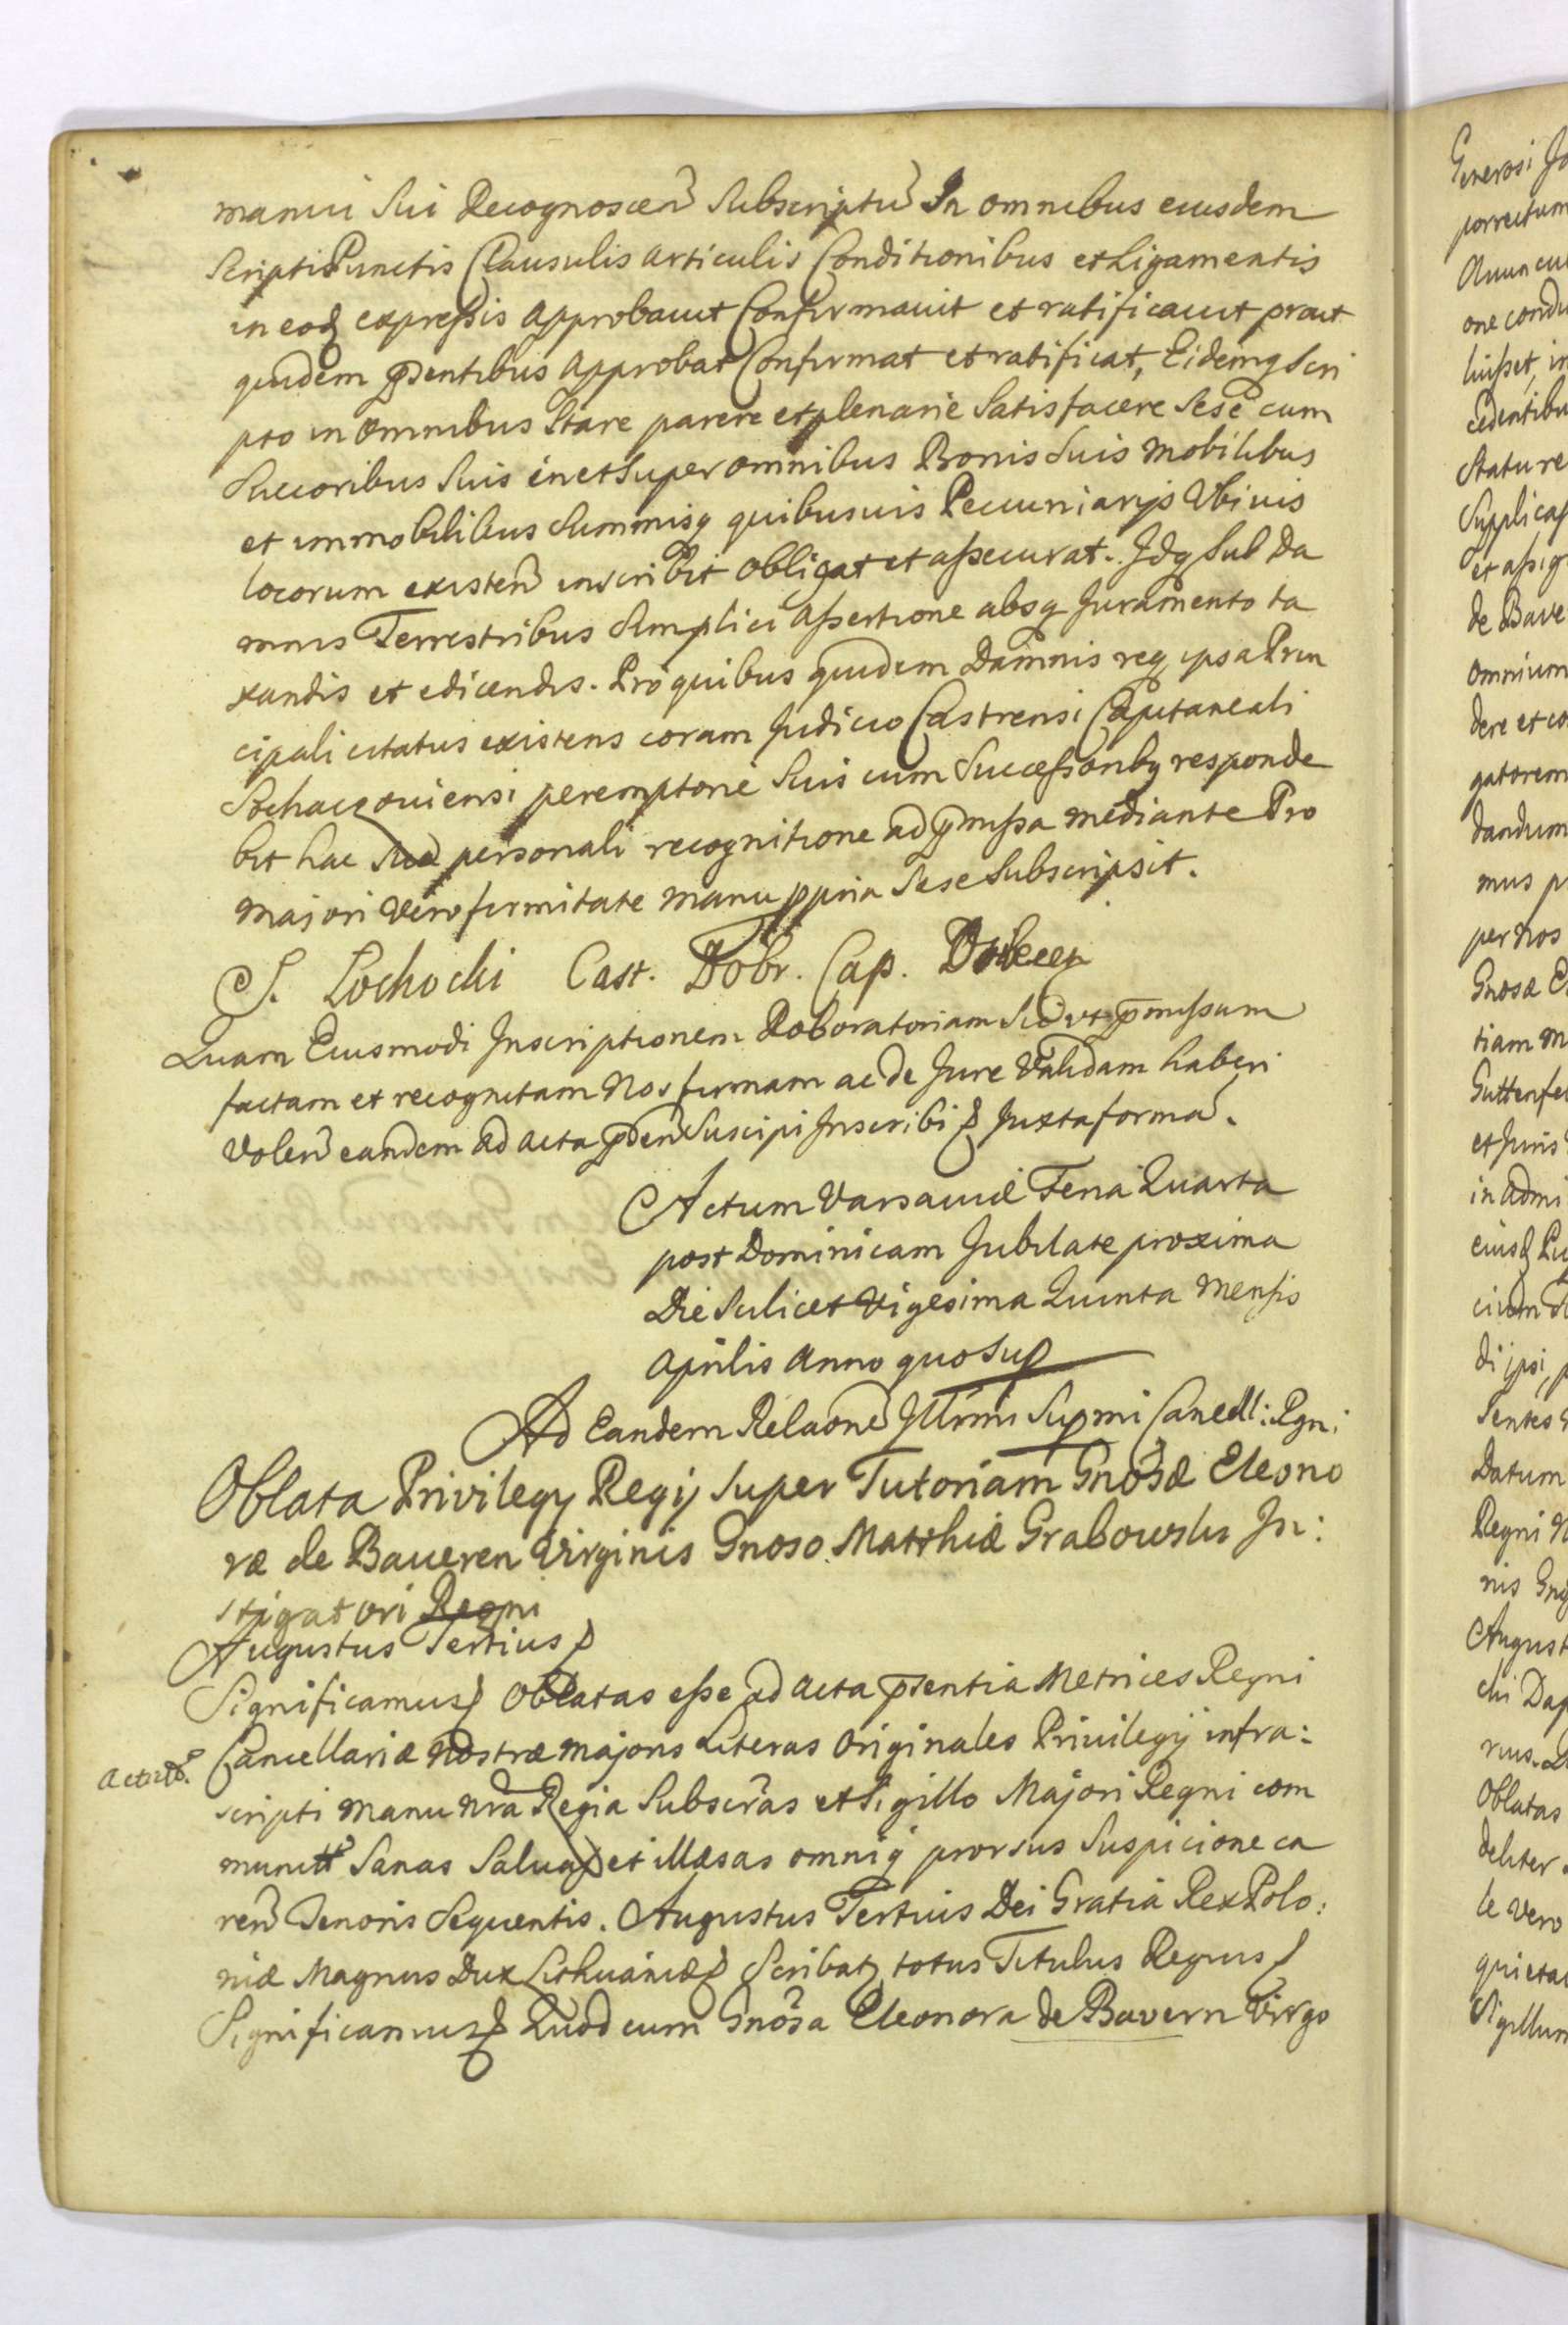 manui Sui Recognoscen Subscriptu In omnibus eiusdem
Scripti Punctis Clausulis articulis Conditionibus et Ligamentis
in eod expressis approbauit Confirmauit et ratificauit prout
quidem pdentibus approbat Confirmat et ratificat, Eidemq Scri
pto in omnibus Stare parere et plenarie Satisfacere Sese cum
Succoribus Suis in et Super omnibus Bonis Suis mobilibus
et immobilibus Summisq quibusuis Pecuniarijs Vbiuis
locorum existen inscribit obligat et assecurat. Idq Sub Da
mnis Terrestribus Simplici assertione absq Juramento ta
xandis et edicendis. Pro quibus quidem Damnis req ipsa Prin
cipali citatus existens coram Judicio Castrensi Capitaneali
Sochaczouiensi peremptorie Suis cum Successoribq responde
bit hac Sua personali recognitione ad pmissa mediante Pro
majori Vero firmitate manu ppria Sese Subscripsit.
S. Lochocki Cast. Dobr. Cap.
Quam Eiusmodi Inscriptionem Roboratoriam Sic vt pmissum
factam et recognitam Nos firmam ac de Jure Validam haberi
Volen eandem ad acta pden Suscipi Inscribi p Juxta forma.
Actum Varsauiæ Feria Quarta
post Dominicam Jubilate proxima
Die Scilicet Vigesima Quinta Mensis
Aprilis Anno quo Sup
Ad Eandem Relaone Illrmi Supmi Cancell: Rgni
Oblata Privilegy Regij Super Tutoriam Gnosæ Eleono
ræ de Baueren Virginis Gnoso Matthiæ Grabowski In:
stigatori Regni
Augustus Tertius p
Significamus p Oblatas esse ad acta psentia Metrices Regni
Cancellariæ Nostræ majoris Literas Originales Priuilegij infra:
scripti manu nra Regia Subscras et Sigillo Majori Regni com
munit Sanas Saluas et illæsas omniq prorsus Suspicione ca
ren Tenoris Sequentis. Augustus Tertius Dei Gratia Rex Polo:
niæ Magnus Dux Lithuaniæ p Scribat totus Titulus Regius p
Significamus p Quod cum Gnosa Eleonora de Bavern Virgo
Generosi
porrectum
one condu
luisset, in
cedentibu
Statu re
Supplica
et assig
de Bave
omnium
dere et co
gatorem
dandum
mus p
per nos
Gnosæ E
tiam m
Guttenfe
et Juris
in admi
di ipsi, p
Sentes
Datum
Regni
nis
August
chi Dap
Oblatas
deliter
le Vero
quieta
Sigillum